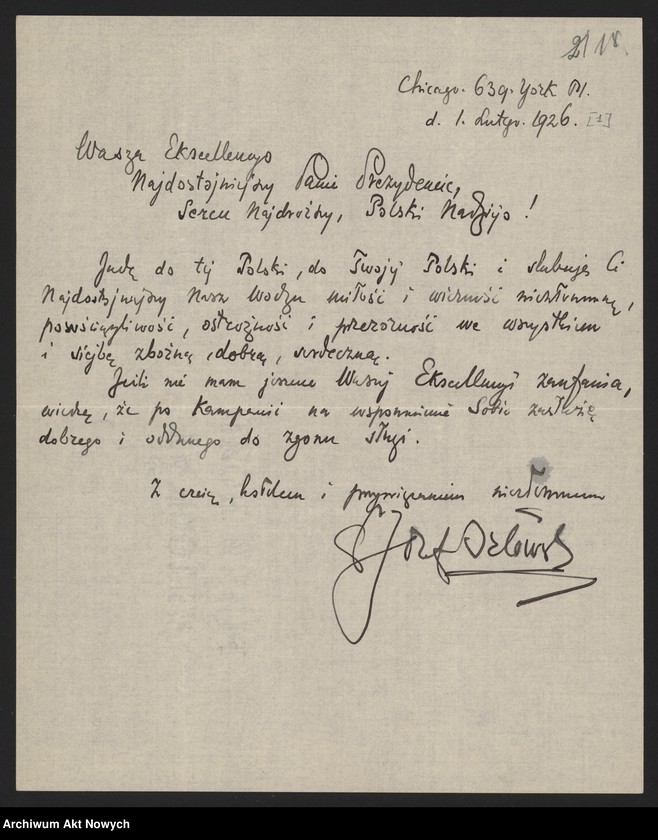 2/18.
Chicago. 639. York Pl.
d. 1. Lutego. 1926. [1]
Wasza Ekscellencyo
Najdostojniejszy Panie Prezydencie,
Sercu Najdroższy, Polski Nadziejo!
Jadę do tej Polski, do Twojej Polski i ślubuję Ci
Najdostojniejszy Nasz Wodzu miłość i wierność niezłomną,
powściągliwość, ostrożność i przezorność we wszystkiem
i siejbę zbożną, dobrą, serdeczną.
Jeśli nie mam jeszcze Waszej Ekscellencyi zaufania,
wierzę, że po Kampanii na wspomnienie Sobie zasłużę
dobrego i oddanego do zgonu sługi.
Z czcią, hołdem i przywiązaniem niezłomnem
Józef Orłowski
Archiwum Akt Nowych